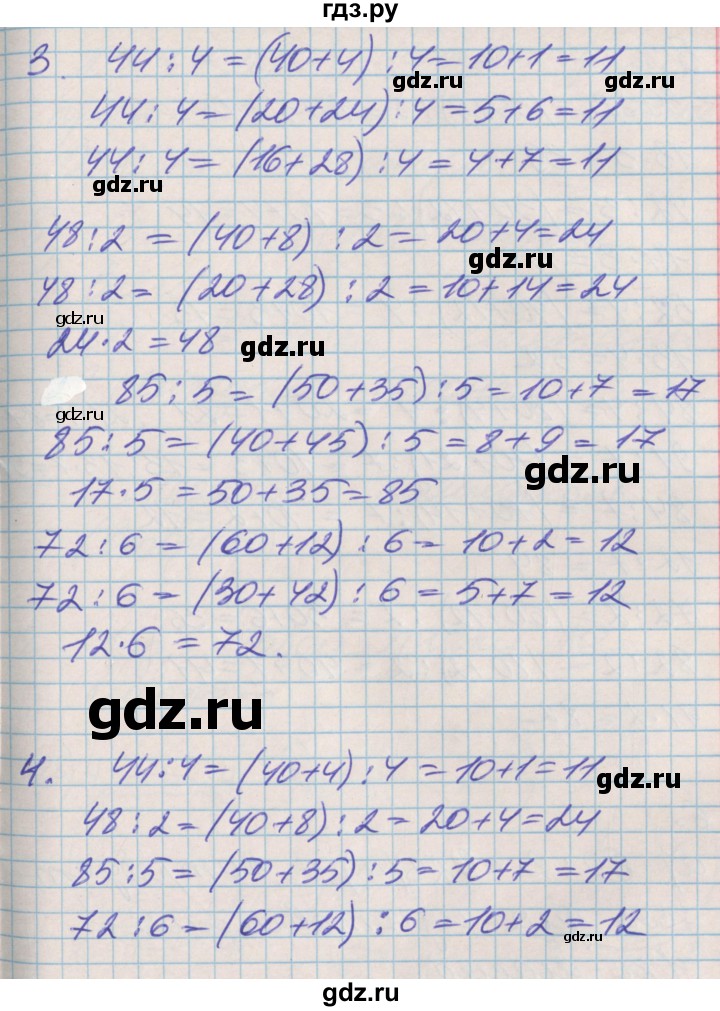 гдз.ру
3. 44 : 4 = (40+4) : 4 = 10+1 = 11
gdz.ru gdz.ru
44 : 4 = (20+24) : 4 = 5+6 = 11
44 : 4 = (16+28) : 4 = 4+7 = 11
gdz.ru
48 : 2 = (40+8) : 2 = 20+4 = 24
gdz.ru
48 : 2 = (20+28) : 2 = 10+14 = 24
gdz.ru
24·2 = 48
gdz.ru
85 : 5 = (50+35) : 5 = 10+7 = 17
gdz.ru
85 : 5 = (40+45) : 5 = 8+9 = 17
gdz.ru
17·5 = 50+35 = 85
72 : 6 = (60+12) : 6 = 10+2 = 12
72 : 6 = (30+42) : 6 = 5+7 = 12
12·6 = 72.
gdz.ru
4. 44 : 4 = (40+4) : 4 = 10+1 = 11
gdz.ru
48 : 2 = (40+8) : 2 = 20+4 = 24
85 : 5 = (50+35) : 5 = 10+7 = 17
72 : 6 = (60+12) : 6 = 10+2 = 12
gdz.ru
gdz.ru